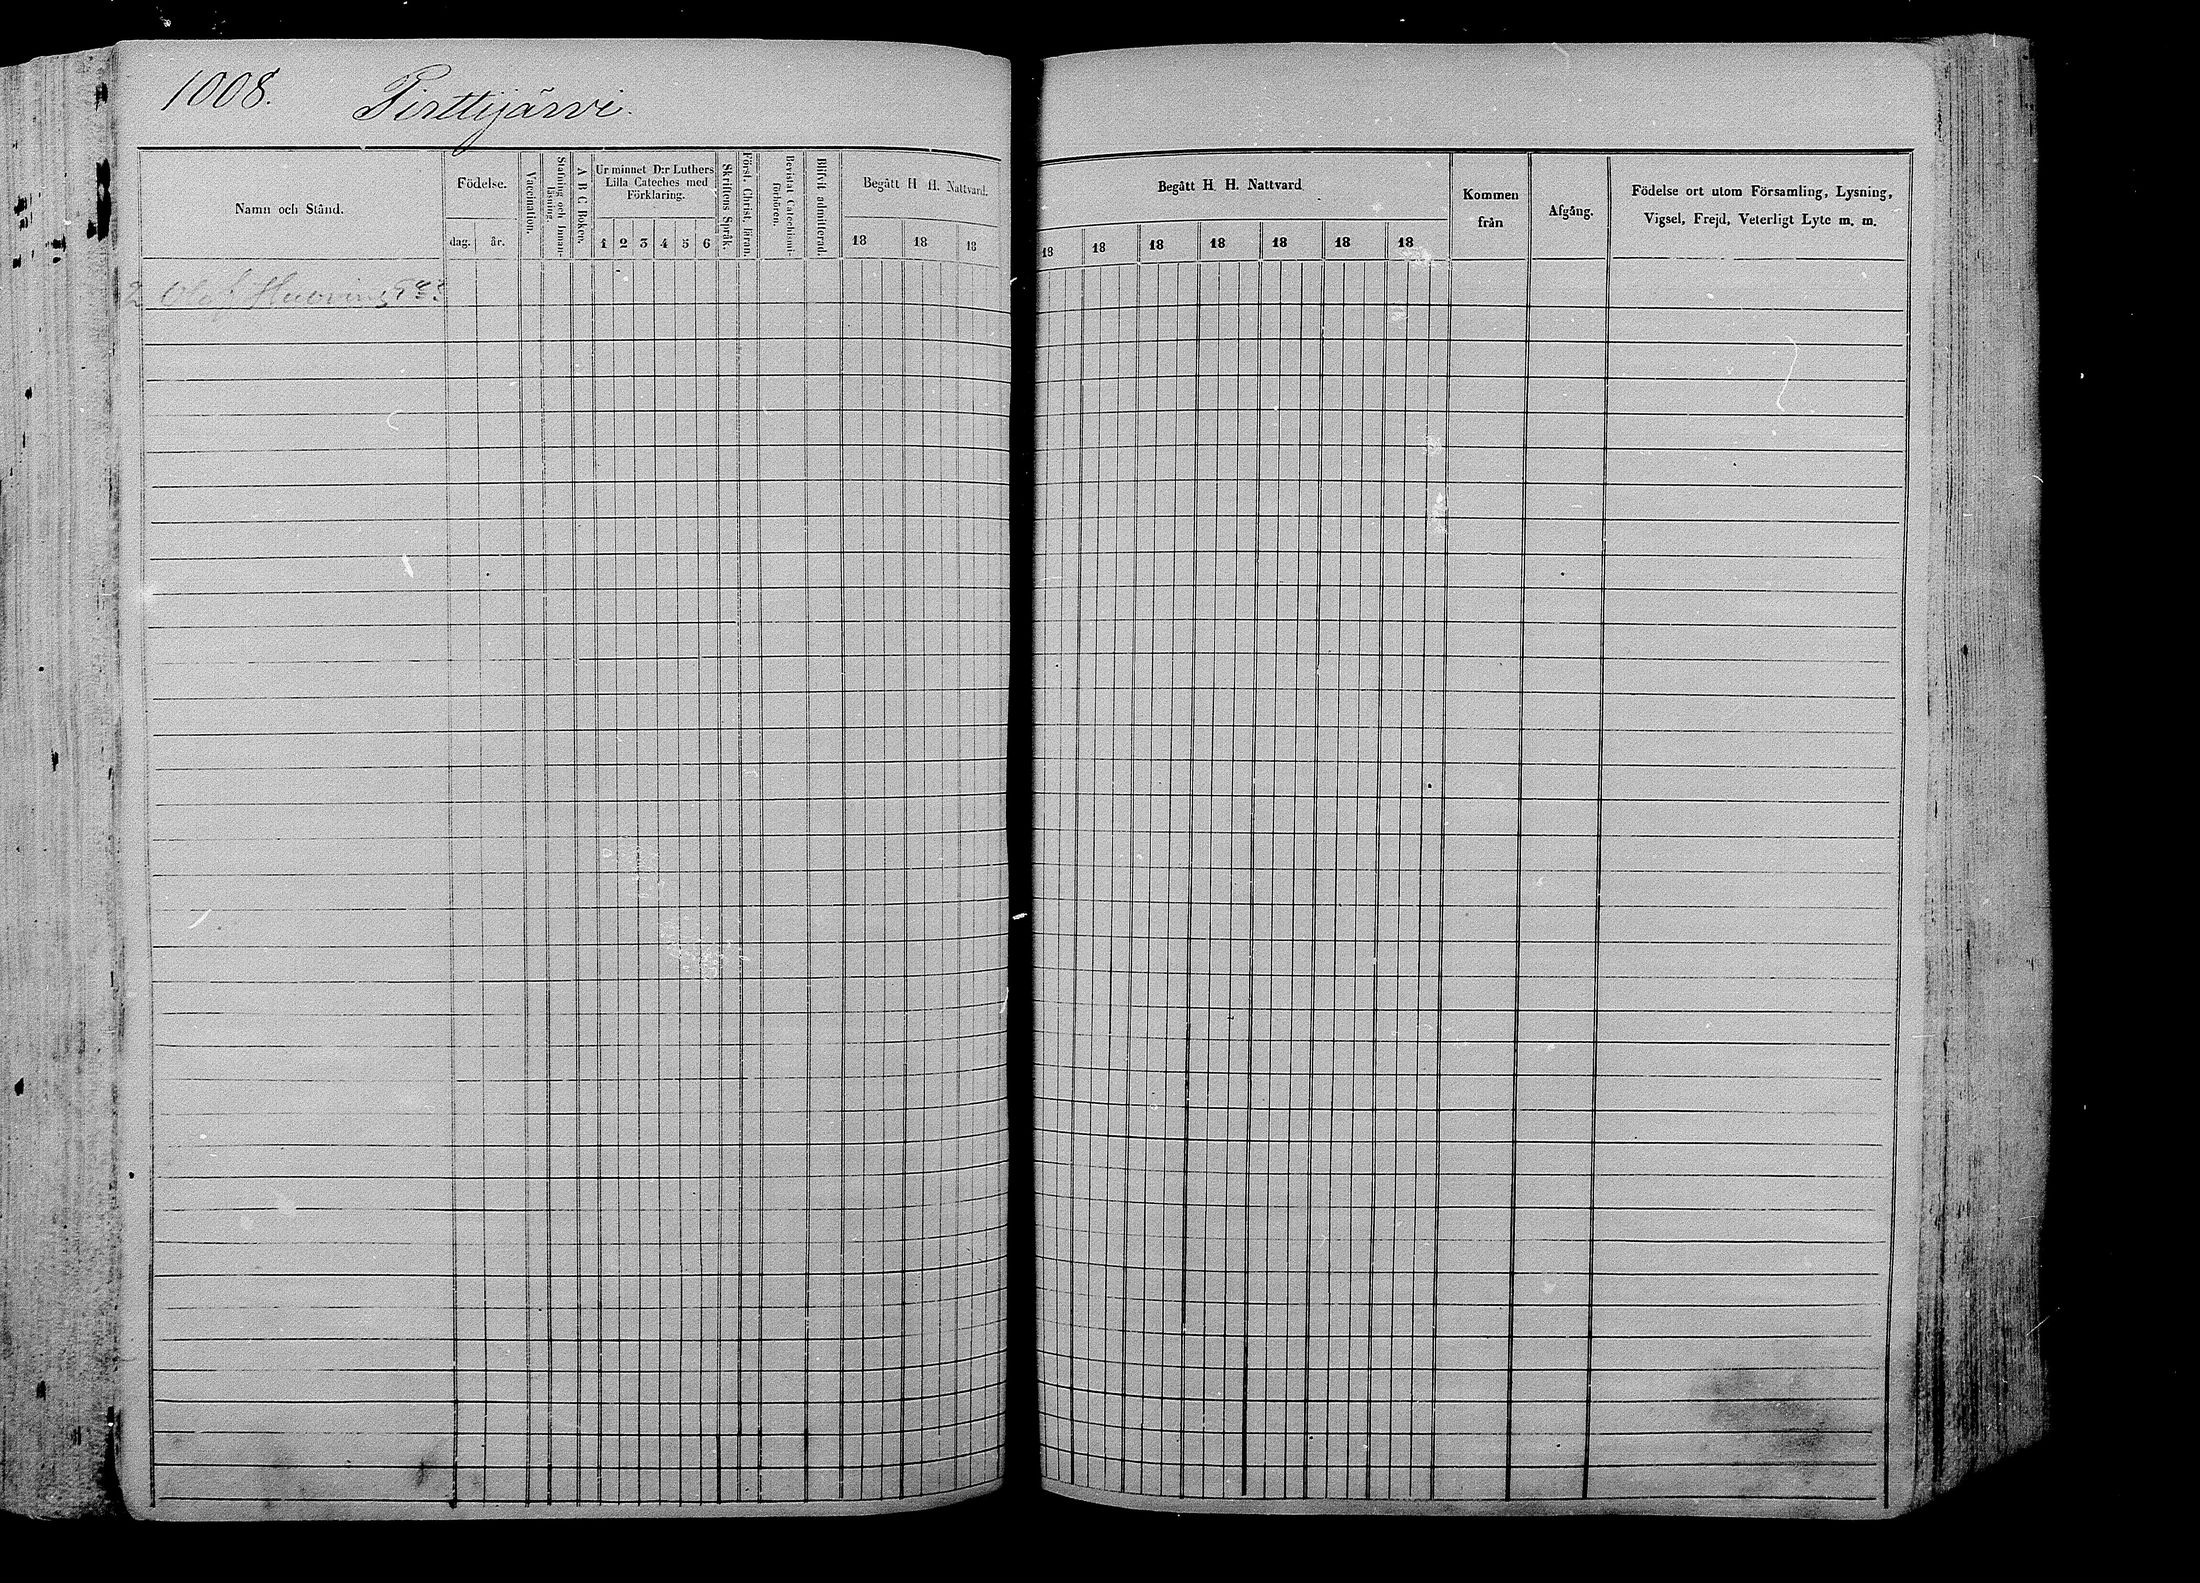 1008. Pirttijärvi.
Namn och Stånd.
Födelse.
dag. år.
Vaccination.
Stafning och Innan-
läsning.
A B C Boken.
Ur minnet D:r Luthers
Lilla Cateches med
Förklaring.
1 2 3 4 5 6
Skriftens Språk.
Först. Christ. läran.
Bevistat Catechismi-
förhören.
Blifvit admitterad.
Begått H. H. Nattvard.
18 18 18
Begått H. H. Nattvard
18 18 18 18 18 18 18
Kommen
från
Afgång.
Födelse ort utom Församling, Lysning,
Vigsel, Frejd, Veterligt Lyte m. m.